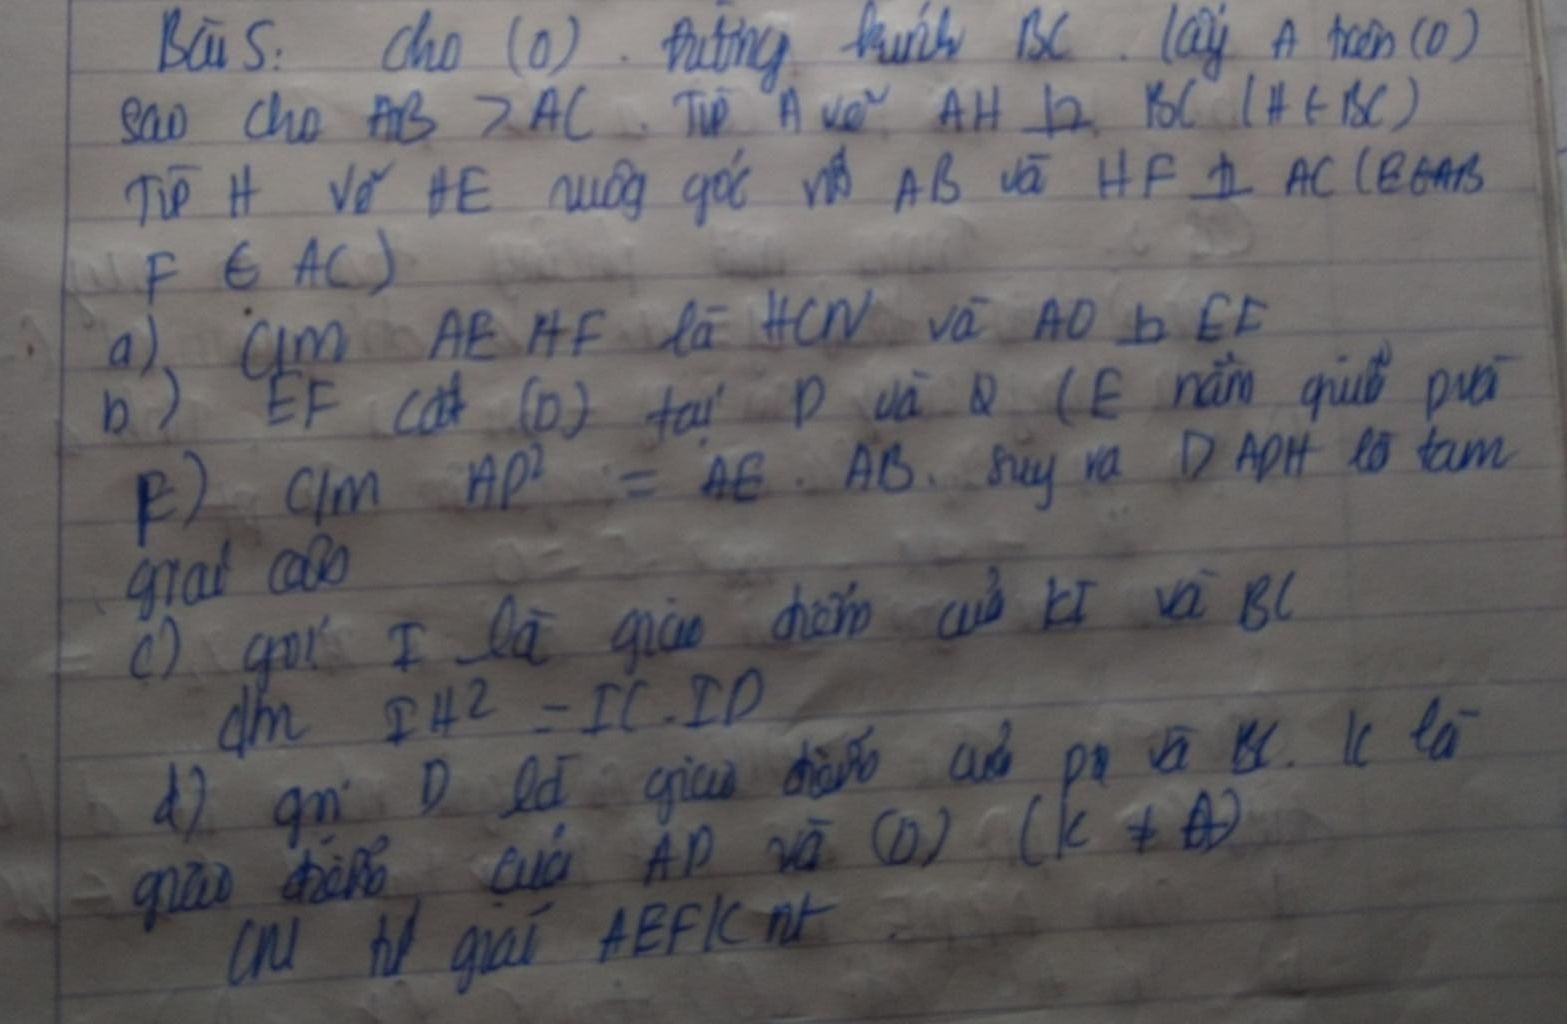 Bài 5: Cho (O). đường kính BC. lấy A trên (O)
sao cho AB > AC. Từ A vẽ AH ⊥ BC (H ∈ BC)
Từ H vẽ HE vuông góc với AB và HF ⊥ AC (E ∈ AB
F ∈ AC)
a) C/m AEHF là HCN và AO ⊥ EF
b) EF cắt (O) tại P và Q (E nằm giữa P và
F) C/m AP² = AE . AB. Suy ra D APH là tam
giác cân
c) gọi I là giao điểm của KF và BC
c/m IH² = IC . ID
d) gọi D là giao điểm của PQ và BC. K là
giao điểm của AD và (O) (K ≠ A)
CM tứ giác AEFK nt